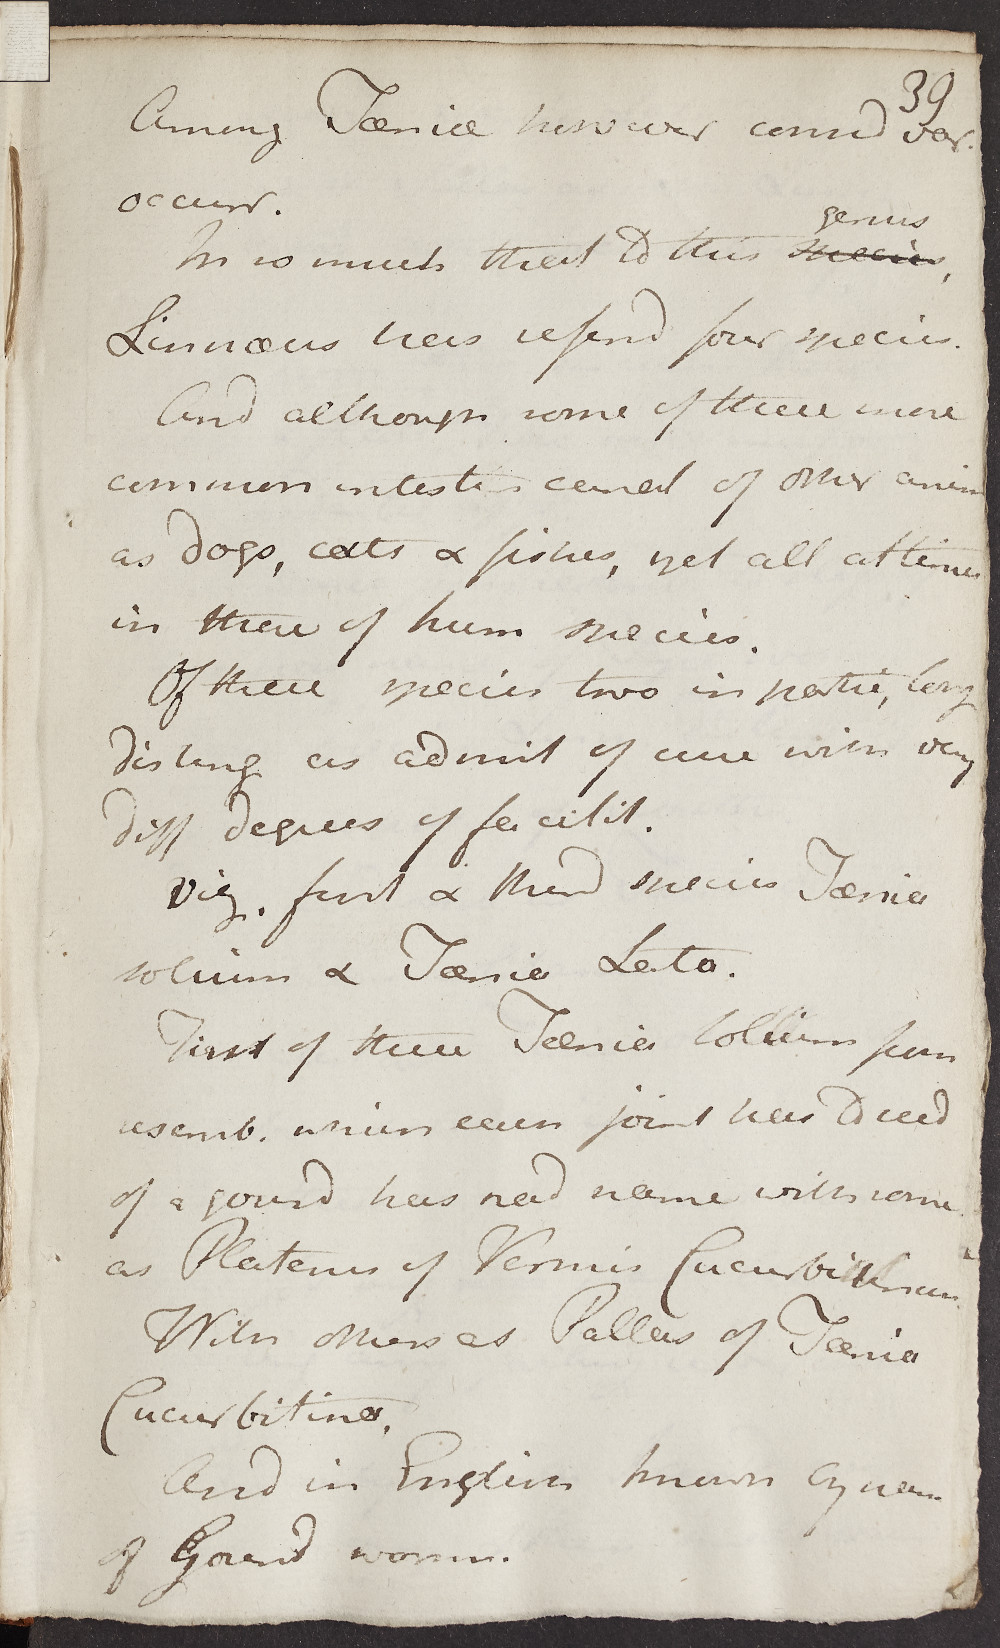 39
Among Tæniæ however consid var.
occurr.
In so much that to this species, genus
Linnæus has referrd four species.
And although some of these more
common intestin canal of other anim
as dogs, cats & fishes, yet all at times
in those of hum species.
Of these species two in partic, long
disting as admit of cure with very
diff degrees of facilit.
viz. first & third species Tænia
solium & Tænia Lata.
First of these Tænia Solium from
resemb. which each joint has to seed
of a gourd has recd name with some
as Platerus of Vermis Cucurbitinus
With others as Pallas of Tænia
Cucurbitina.
And in English known by nam
of Gourd worm.